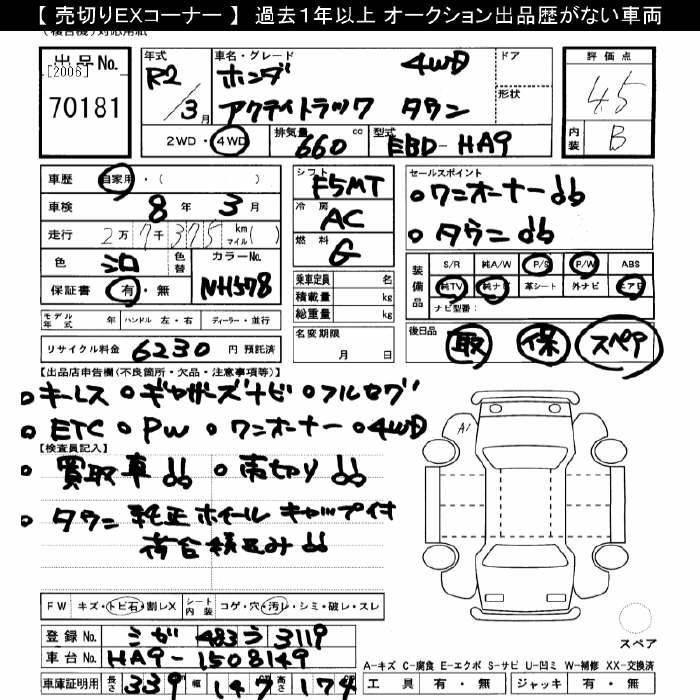 【 売切りEXコーナー 】 過去1年以上 オークション出品歴がない車両
出品No. [2006] 70181
年式 R2/3月
車名・グレード ホンダ 4WD
アクティトラック タウン
ドア
形状
評価点 45
内装 B
2WD・4WD 排気量 660 cc 型式 EBD-HA9
車歴 自家用・( )
車検 8年 3月
走行 2万7千375 km マイル( )
色 シロ 色替 カラーNo. NH578
保証書 有・無
シフト F5MT
冷房 AC
燃料 G
乗車定員 名
積載量 kg
総重量 kg
セールスポイント
・ワンオーナー!!
・タウン!!
装備品 S/R 純A/W P/S P/W ABS
純TV 純ナビ 革シート 外ナビ エアB
ナビ型番:
モデル年式 年 ハンドル 左・右 ディーラー・並行
名変期限 月 日
後日品 取 保 スペア
リサイクル料金 6230 円 預託済
【出品店申告欄(不良箇所・欠品・注意事項等)】
・キーレス ・ギャザーズナビ ・フルセグ
・ETC ・PW ・ワンオーナー ・4WD
【検査員記入】
・買取車!! ・売切り!!
・タウン純正ホイールキャップ付
荷台積込み!!
A1
FW キズ・トビ石・割レX シート内装 コゲ・穴・汚レ・シミ・破レ・スレ
スペア
登録No. シガ 483う3119
車台No. HA9-1508149
A-キズ C-腐食 E-エクボ S-サビ U-凹ミ W-補修 XX-交換済
車庫証明用 長さ 339 幅 147 高さ 174
工具 有・無 ジャッキ 有・無